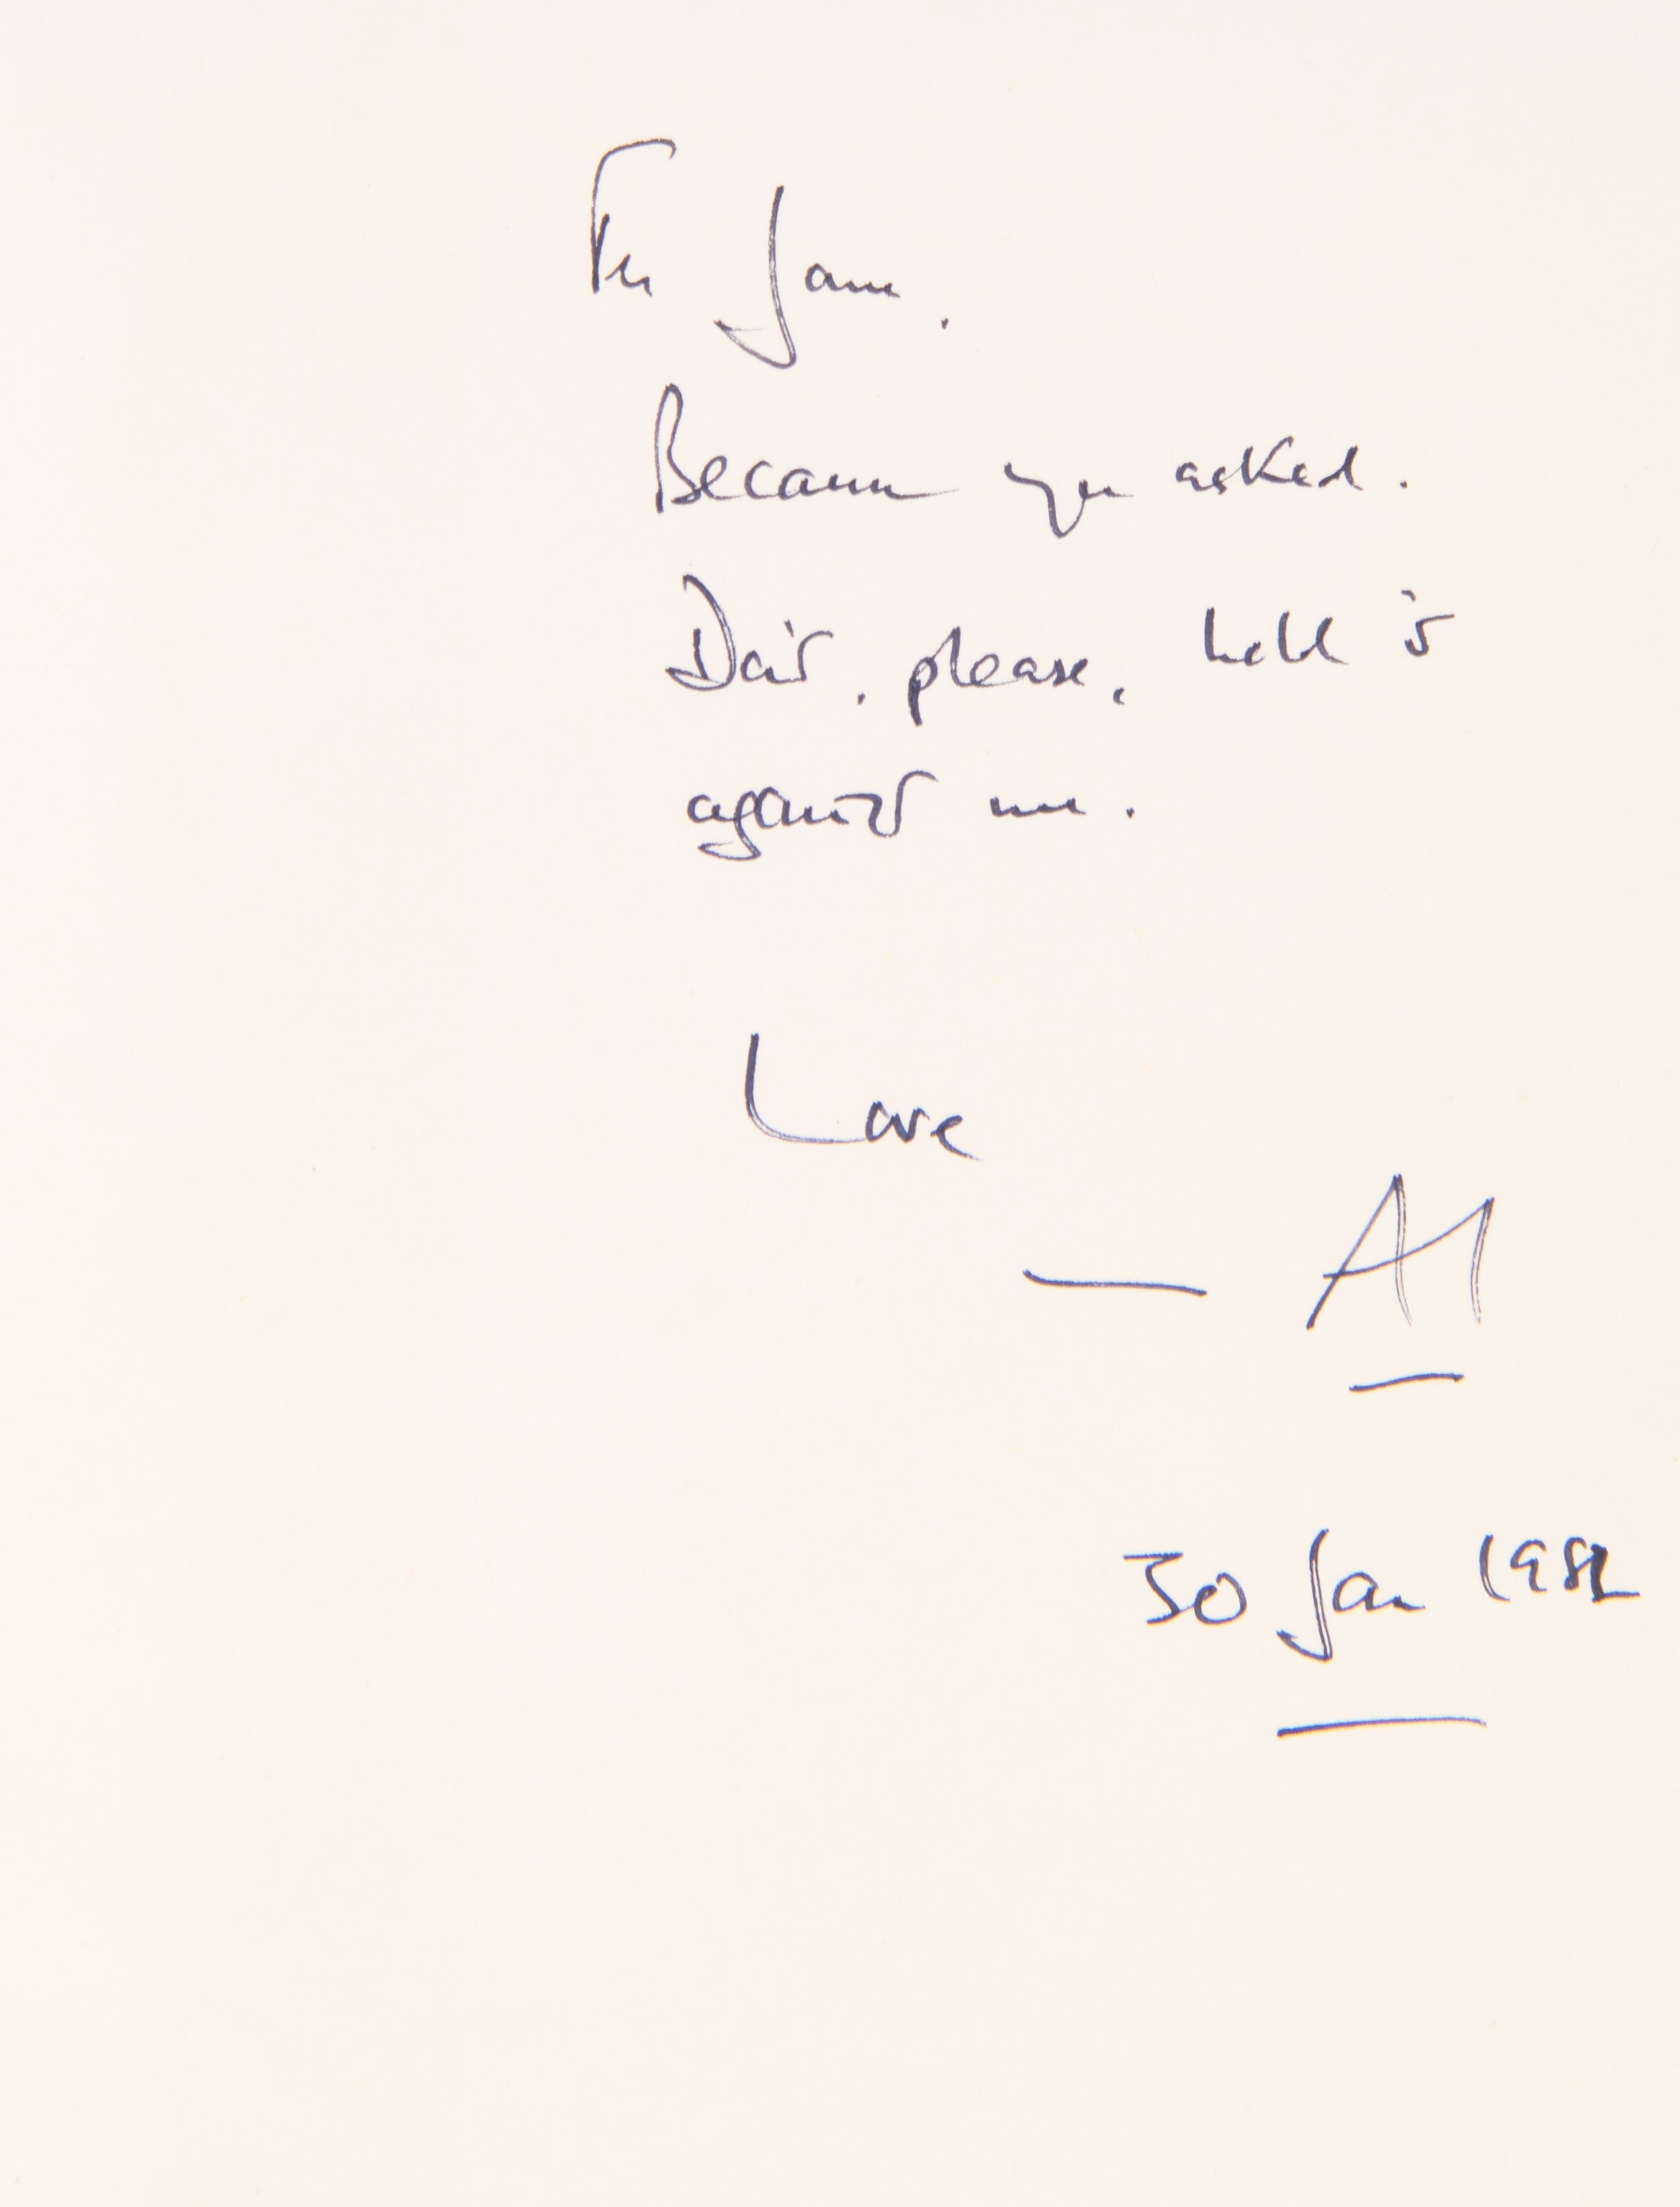 For Jane.
Because you asked.
Don't, please, hold it
against me.
Love
— Al
30 Jan 1982